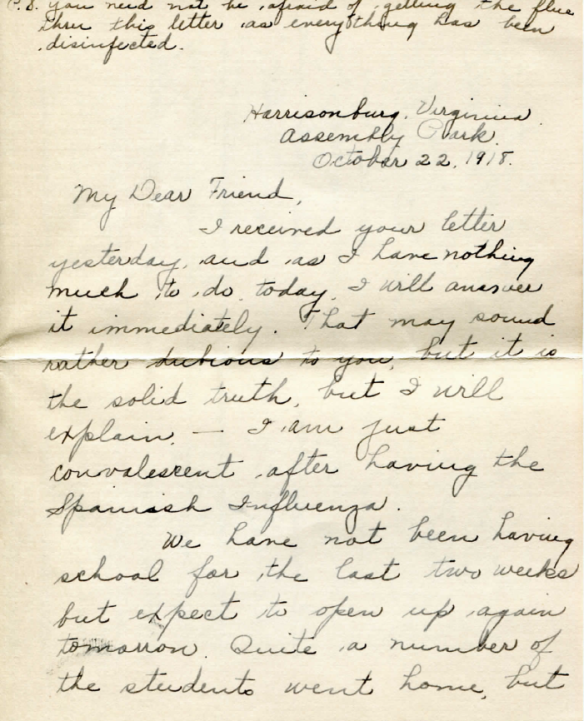 P.S. You need not be afraid of getting the flue
thru this letter as everything has been
disinfected.
Harrisonburg, Virginia.
Assembly Park.
October 22, 1918.
My Dear Friend,
I received your letter
yesterday, and as I have nothing
much to do today, I will answer
it immediately. That may sound
rather dubious to you, but it is
the solid truth, but I will
explain. — I am just
convalescent after having the
Spanish Influenza.
We have not been having
school for the last two weeks
but expect to open up again
tomorrow. Quite a number of
the students went home, but